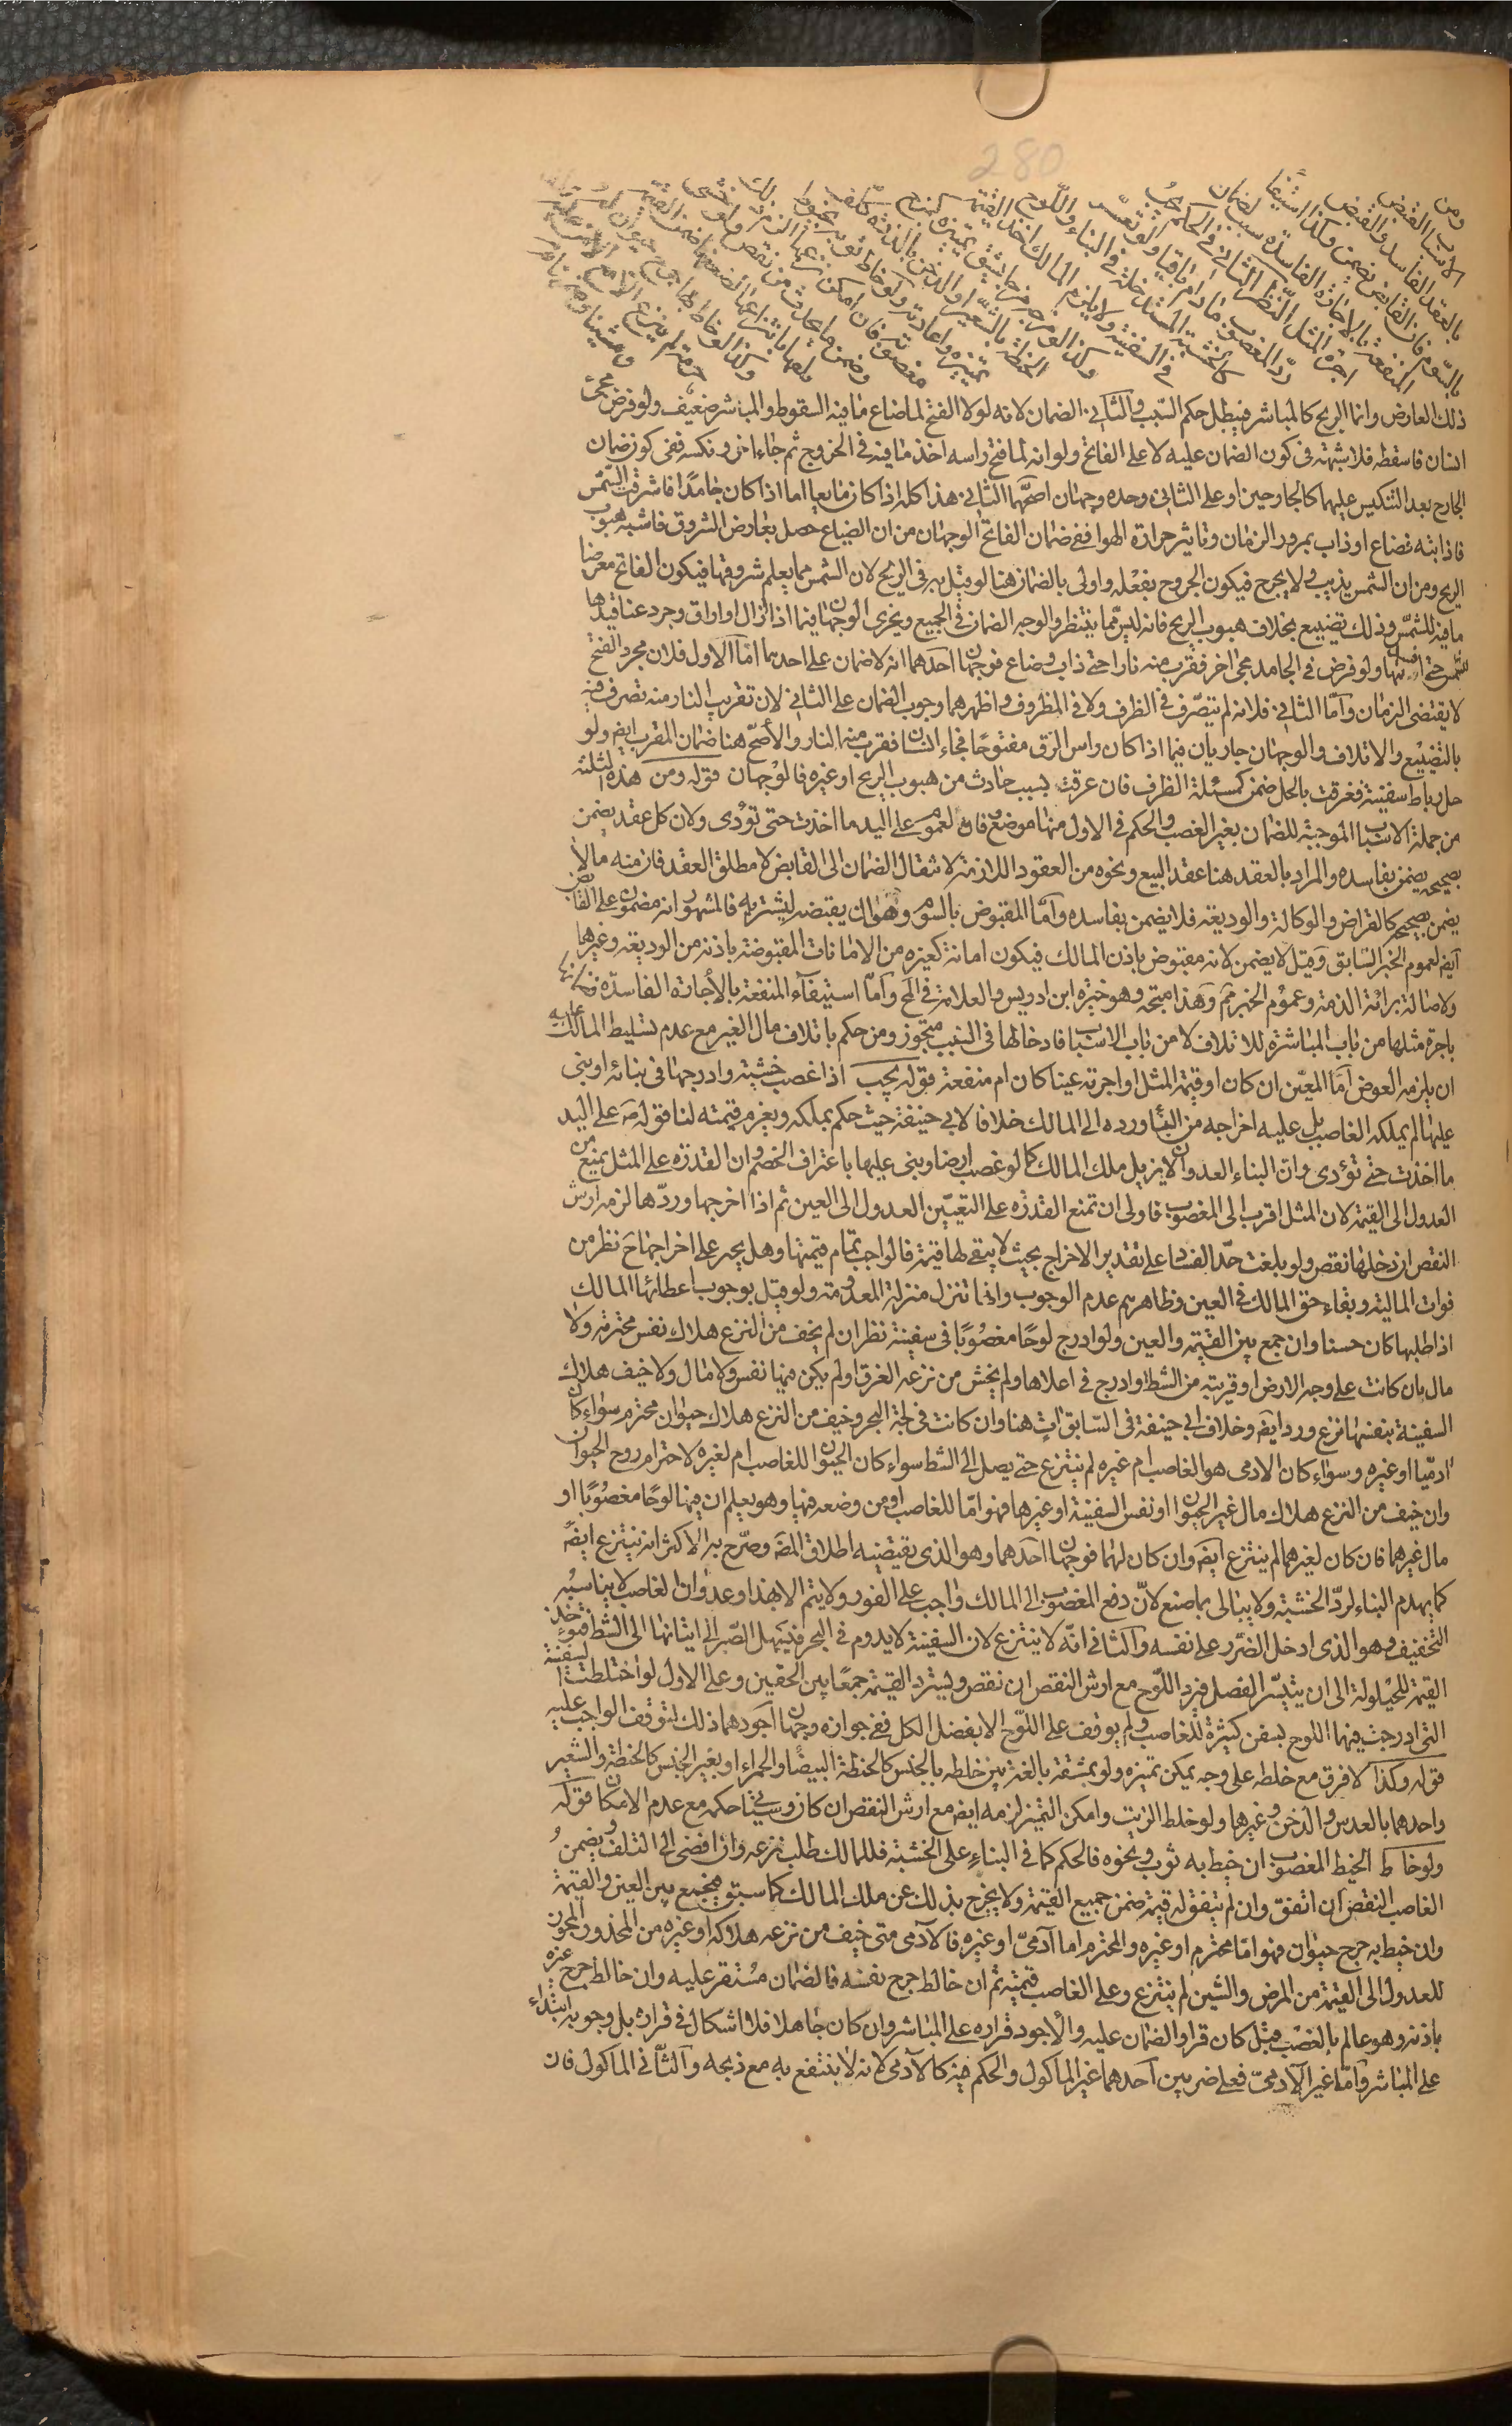 280
ومن
الاسباب القبض
بالعقد الفاسد والقبض
بالسوم فان القابض يضمن وكذا استيفاء
المنفعة بالاجارة الفاسدة سبب لضمان
اجرة المثل النظر الثاني في الحكم يجب
رد المغصوب ما دام باقيا ولو تعسر
كالخشبة المستدخلة في البناء واللوح
في السفينة ولا يلزم المالك اخذ القيمة
وكذا لو مزجه مزجا يشق تمييزه كمزج
الحنطة بالشعير او الدخن بالذرة كلف
تمييزه واعادته ولو خاط ثوبه بخيوط
مغصوبة فان امكن نزعها الزم ذلك
وضمن ما يحدث من نقص ولو خشي
تلفها بانتزاعها لضعفها ضمن القيمة
وكذا لو خاط بها جرح حيوان له
حرمة لم ينزع الا مع الامن عليه
ذلك العارض وانما الريح كالمباشر فيبطل حكم السبب والثاني الضمان لانه لولا الفتح لما ضاع ما فيه السقوط والمباشر ضعيف ولو فرض مجئ
انسان فاسقطه فلا شبهة في كون الضمان عليه لا على الفاتح ولو انه لما فتح راسه اخذ ما فيه في الخروج ثم جاء اخر ونكسه ففي كون ضمان
الخارج بعد التنكيس عليهما كالجارحين او على الثاني وحده وجهان اصحهما الثاني هذا كله اذا كان مايعا اما اذا كان جامدا فاشرقت الشمس
فاذابته فضاع او ذاب بمرور الزمان وتاثير حرارة الهوا ففي ضمان الفاتح الوجهان من ان الضياع حصل بعارض الشروق فاشبه هبوب
الريح ومن ان الشمس يذيب ولا يخرج فيكون الخروج بفعله واولى بالضمان هنا لو قيل به في الريح لان الشمس مما يعلم شروقها فيكون الفاتح معرضا
ما فيه للشمس وذلك تضييع بخلاف هبوب الريح فانه ليس مما ينتظر والوجه الضمان في الجميع ويجري الوجهان فيما اذا ازال اوراق وجرد عناقيدها
للشمس حتى افسدتها ولو فرض في الجامد مجئ اخر فقرب منه نارا حتى ذاب وضاع فوجهان احدهما انه لا ضمان على احدهما اما الاول فلان مجرد الفتح
لا يقتضي الضمان واما الثاني فلانه لم يتصرف في الظرف ولا في المظروف واظهرهما وجوب الضمان على الثاني لان تقريب النار منه تصرف فيه
بالتضييع والاتلاف والوجهان جاريان فيما اذا كان راس الزق مفتوحا فجاء انسان فقرب منه النار والاصح هنا ضمان المقرب ايض ولو
حل رباط سفينة فغرقت بالحل ضمن كمسئلة الظرف فان غرقت بسبب حادث من هبوب الريح او غيره فالوجهان قوله ومن هذه الثلثة
من جملة الاسباب الموجبة للضمان بغير الغصب والحكم في الاول منها موضع وفاق لعموم على اليد ما اخذت حتى تؤدى ولان كل عقد يضمن
بصحيحه يضمن بفاسده والمراد بالعقد هنا عقد البيع ونحوه من العقود اللازمة لانتقال الضمان الى القابض لا مطلق العقد فان منه ما لا
يضمن بصحيحه كالقراض والوكالة والوديعة فلا يضمن بفاسده واما المقبوض بالسوم وهو ان يقبضه ليشتريه فالمشهور انه مضمون على القابض
ايض لعموم الخبر السابق وقيل لا يضمن لانه مقبوض باذن المالك فيكون امانة كغيره من الامانات المقبوضة باذنه من الوديعة وغيرها
ولاصالة برائة الذمة وعموم الخبر مم وهذا متجه وهو خيرة ابن ادريس والعلامة في لخ واما استيفاء المنفعة بالاجارة الفاسدة
باجرة مثلها من باب المباشرة للاتلاف لا من باب الاسباب فادخالها في السبب متجوز ومن حكم باتلاف مال الغير مع عدم تسليط المالك عليه
ان يلزمه العوض اما المعين ان كان او قيمة المثل او اجرته عينا كان ام منفعة قوله يجب اذا غصب خشبة وادرجها في بنائه او بنى
عليها لم يملكه الغاصب بل عليه اخراجه من البناء ورده الى المالك خلافا لابي حنيفة حيث حكم بملكه ويغرم قيمته لنا قوله ص على اليد
ما اخذت حتى تؤدى وان البناء العدوان لا يزيل ملك المالك كما لو غصب ارضا وبنى عليها باعتراف الخصم وان القدرة على المثل يمنع من
العدول الى القيمة لان المثل اقرب الى المغصوب فاولى ان تمنع القدرة على التعيين العدول الى العين ثم اذا اخرجها وردها لزمه ارش
النقص ان دخلها نقص ولو بلغت حد الفساد على تقدير الاخراج بحيث لا يبقى لها قيمة فالواجب تمام قيمتها وهل يجبر على اخراجها ح نظر من
فوات المالية وبقاء حق المالك في العين وظاهرهم عدم الوجوب وانها تنزل منزلة المعدومة ولو قيل بوجوب اعطائها المالك
اذا طلبها كان حسنا وان جمع بين القيمة والعين ولو ادرج لوحا مغصوبا في سفينة نظر ان لم يخف من النزع هلاك نفس محترمة ولا
مال بان كانت على وجه الارض او قريبة من الشط او ادرج في اعلاها ولم يخش من نزعه الغرق او لم يكن فيها نفس ولا مال ولا خيف هلاك
السفينة بنفسها نزع ورد ايض وخلاف ابي حنيفة في السابق ات هنا وان كانت في لجة البحر وخيف من النزع هلاك حيوان محترم سواء كان
ادميا او غيره وسواء كان الادمي هو الغاصب ام غيره لم ينتزع حتى يصل الى الشط سواء كان الحيوان للغاصب ام لغيره لاحترام روح الحيوان
وان خيف من النزع هلاك مال غير الحيوان او نفس السفينة او غيرها فهو اما للغاصب او من وضعه فيها وهو يعلم ان فيها لوحا مغصوبا او
مال غيرهما فان كان لغيرهما لم ينتزع ايض وان كان لهما فوجهان احدهما وهو الذي يقتضيه اطلاق المص وصرح به الاكثر انه ينتزع ايض
كما يهدم البناء لرد الخشبة ولا يبالى بما صنع لان دفع المغصوب الى المالك واجب على الفور ولا يتم الا بهذا وعدوان الغاصب لا يناسبه
التخفيف وهو الذي ادخل الضرر على نفسه والثاني انه لا ينتزع لان السفينة لا يدوم في البحر فيسهل الصبر الى انتهائها الى الشط فتؤخذ
القيمة للحيلولة الى ان يتيسر الفصل فيرد اللوح مع ارش النقص ان نقص ويسترد القيمة جمعا بين الحقين وعلى الاول لو اختلطت السفينة
التي ادرجت فيها اللوح بسفن كثيرة للغاصب ولم يوقف على اللوح الا بفصل الكل ففي جوازه وجهان اجودهما ذلك لتوقف الواجب عليه
قوله وكذا لا فرق مع خلطه على وجه يمكن تميزه ولو بمشقة بالغة بين خلطه بالجنس كالحنطة البيضا والحمراء او بغير الجنس كالحنطة والشعير
واحدهما بالعدس والدخن وغيرها ولو خلط الزيت وامكن التميز لزمه ايض مع ارش النقص ان كان وسياتي حكمه مع عدم الامكان قوله
ولو خاط الخيط المغصوب ان خيط به ثوب ونحوه فالحكم كما في البناء على الخشبة فللمالك طلب نزعه وان افضى الى التلف ويضمن
الغاصب النقص ان اتفق وان لم يتفق له قيمة ضمن جميع القيمة ولا يخرج بذلك عن ملك المالك كما سبق فيجمع بين العين والقيمة
وان خيط به جرح حيوان فهو اما محترم او غيره والمحترم اما آدمي او غيره فالآدمي متى خيف من نزعه هلاكه او غيره من المحذور المجوز
للعدول الى القيمة من المرض والشين لم ينتزع وعلى الغاصب قيمته ثم ان خاط جرح نفسه فالضمان مستقر عليه وان خاط جرح غيره
باذنه وهو عالم بالغصب قيل كان قرار الضمان عليه والاجود قراره على المباشر وان كان جاهلا فلا اشكال في قراره بل وجوبه ابتداء
على المباشر واما غير الآدمي فعلى ضربين احدهما غير الماكول والحكم فيه كالآدمي لانه لا ينتفع به مع ذبحه والثاني الماكول فان